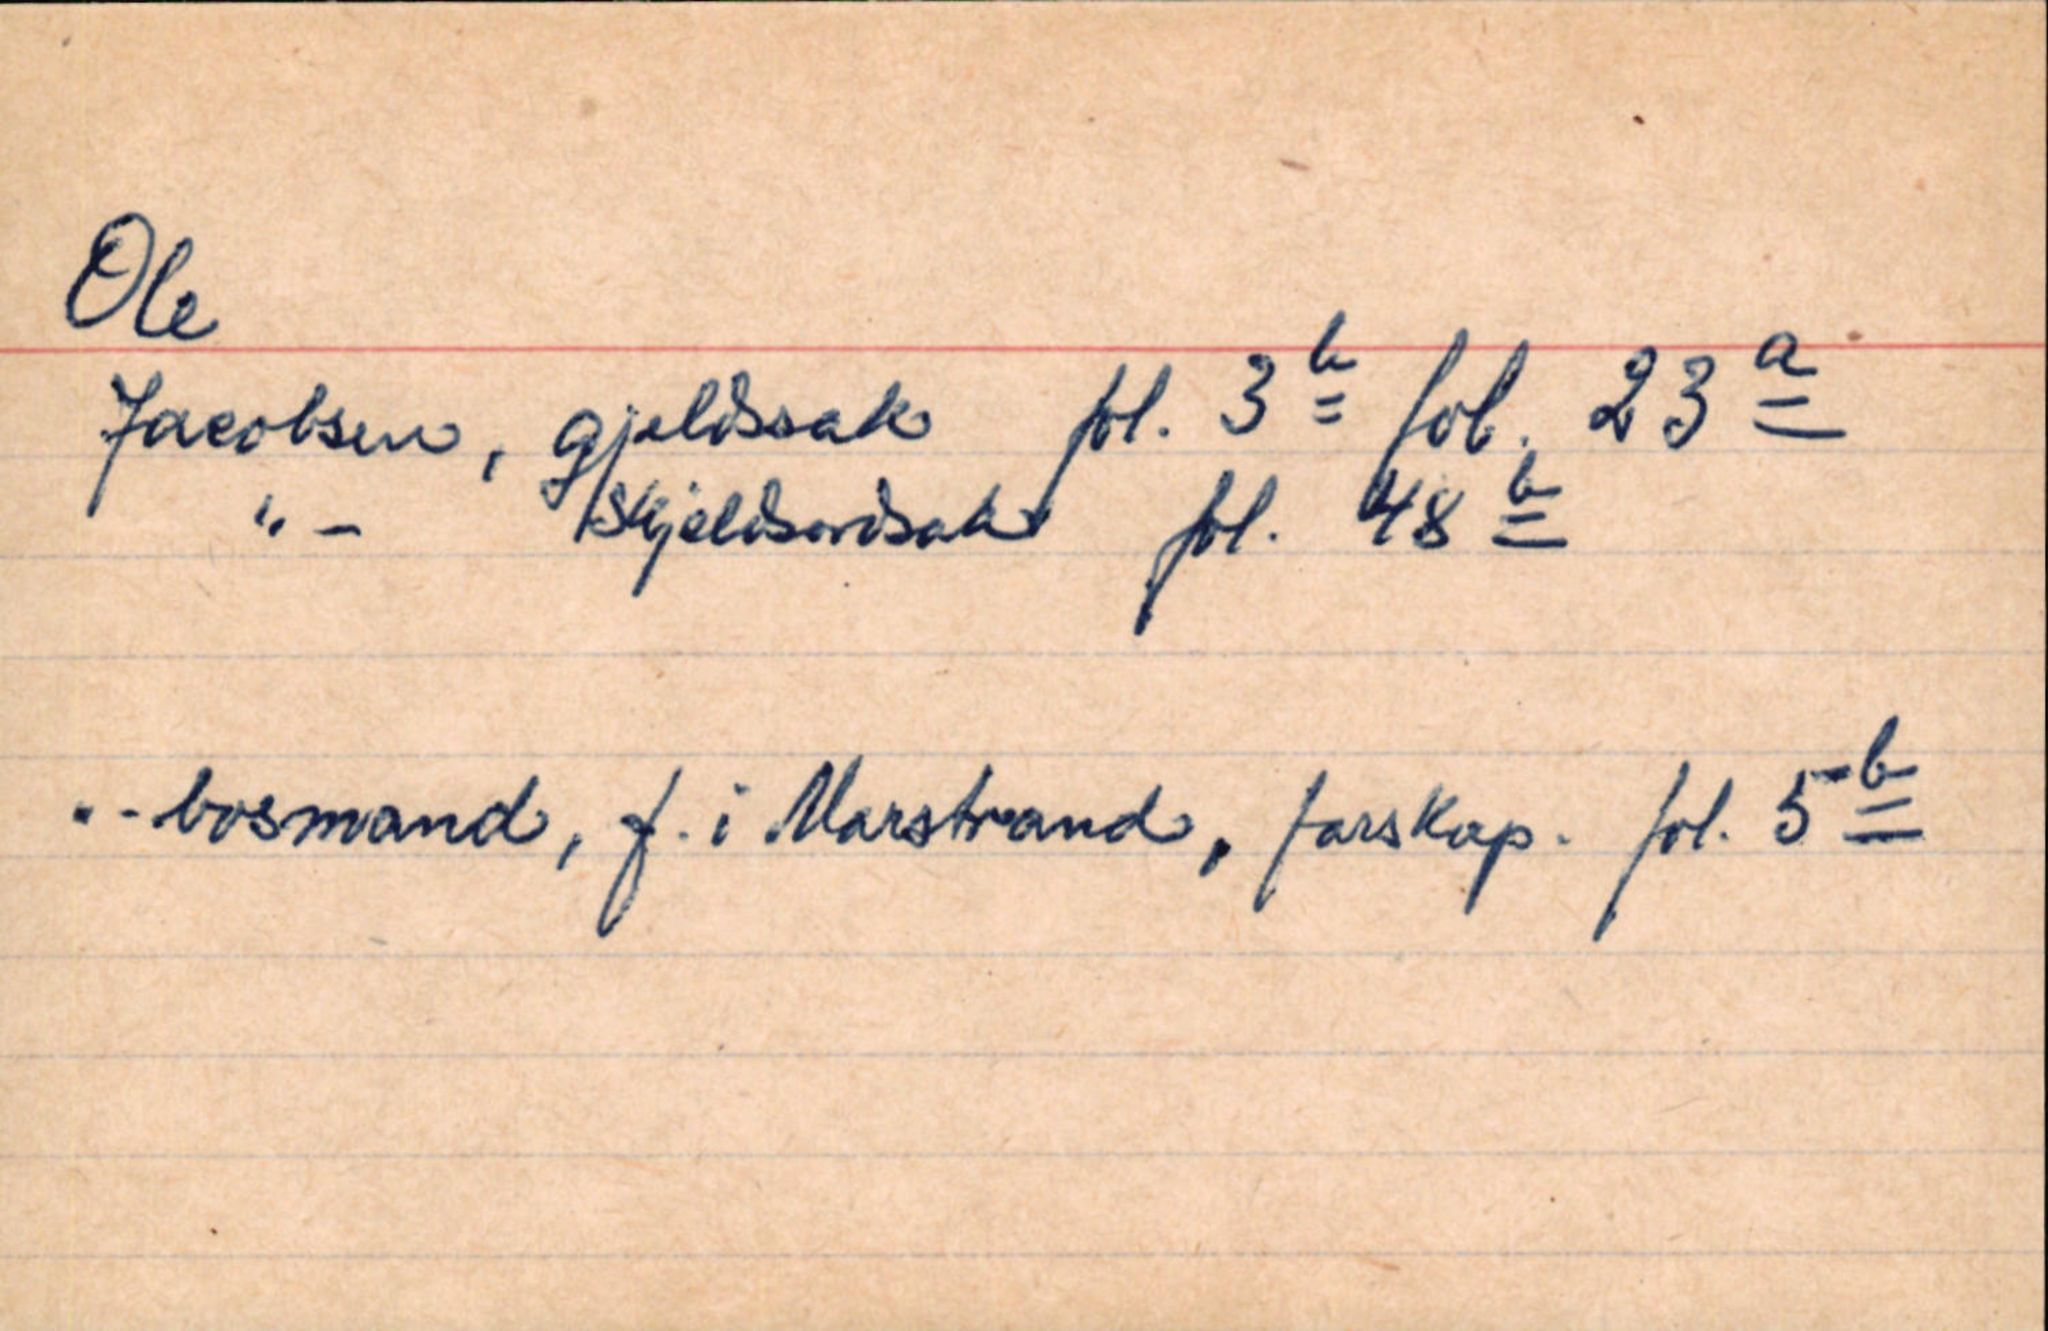 Ole
Jacobsen, gjeldssak fol. 3b fol. 23a
"- skjeldsordsak fol. 48b
"- bosmand, f. i Marstrand, farskap. fol. 5b